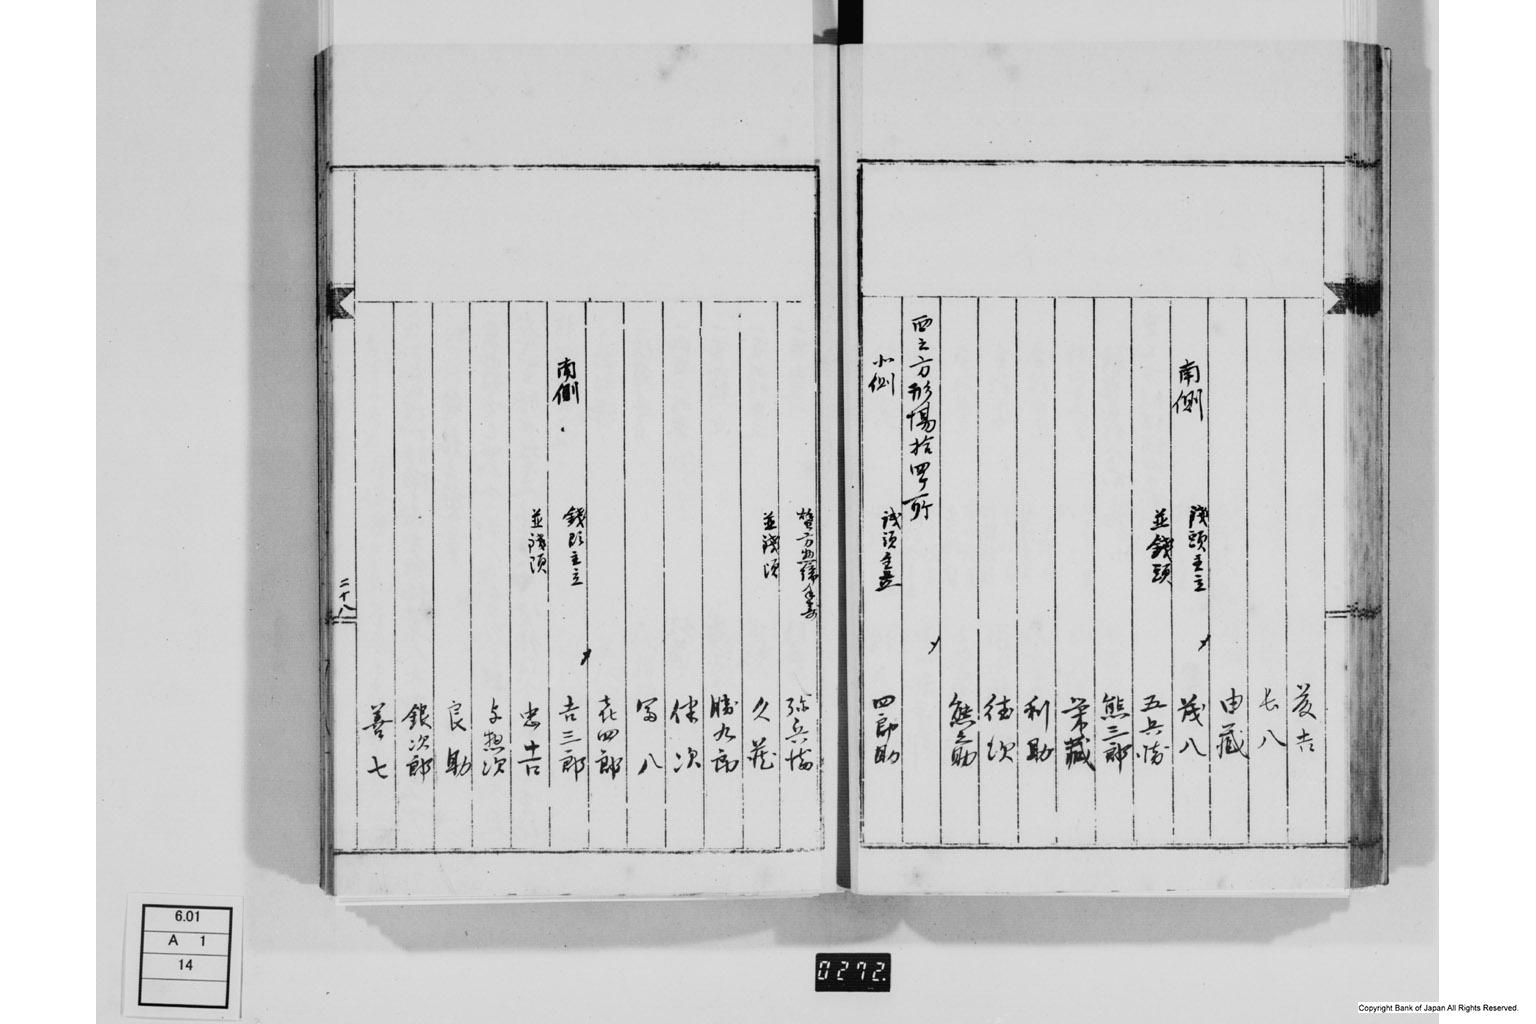 善吉
七八
由蔵
南側
銭頭主立
茂八
並銭頭
五兵衛
熊三郎
栄蔵
利助
徳次
熊之助
西之方形場拾四ヶ所
北側
銭頭主立
四郎助
弥兵衛
並銭頭
久蔵
勝九郎
伴次
冨八
喜四郎
南側
銭頭主立
吉三郎
並銭頭
忠吉
与惣次
良助
銀次郎
善七
二十八
6.01
A 1
14
0272.
Copyright Bank of Japan All Rights Reserved.